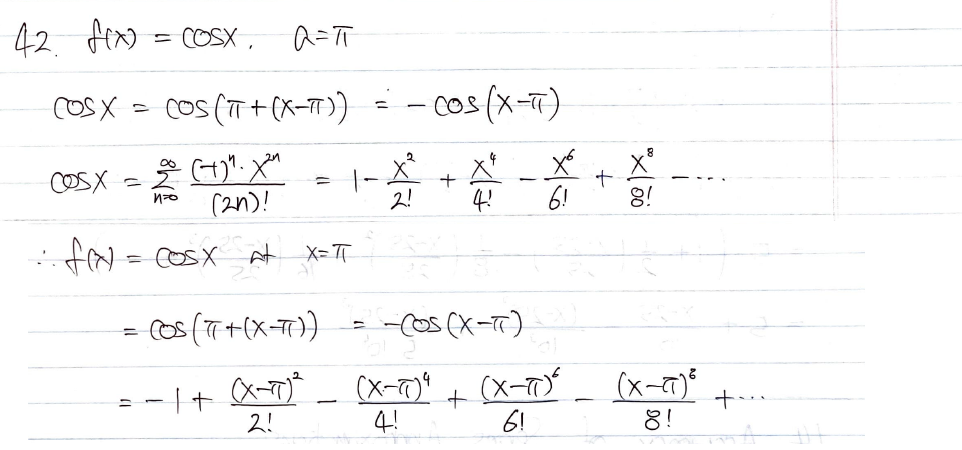 42. f(x) = cosx, a=π
cosx = cos(π+(x-π)) = -cos(x-π)
cosx = ∑_{n=0}^{∞} (-1)ⁿ·x²ⁿ/(2n)! = 1 - x²/2! + x⁴/4! - x⁶/6! + x⁸/8! - ...
∴ f(x) = cosx at x=π
= cos(π+(x-π)) = -cos(x-π)
= -1 + (x-π)²/2! - (x-π)⁴/4! + (x-π)⁶/6! - (x-π)⁸/8! + ...